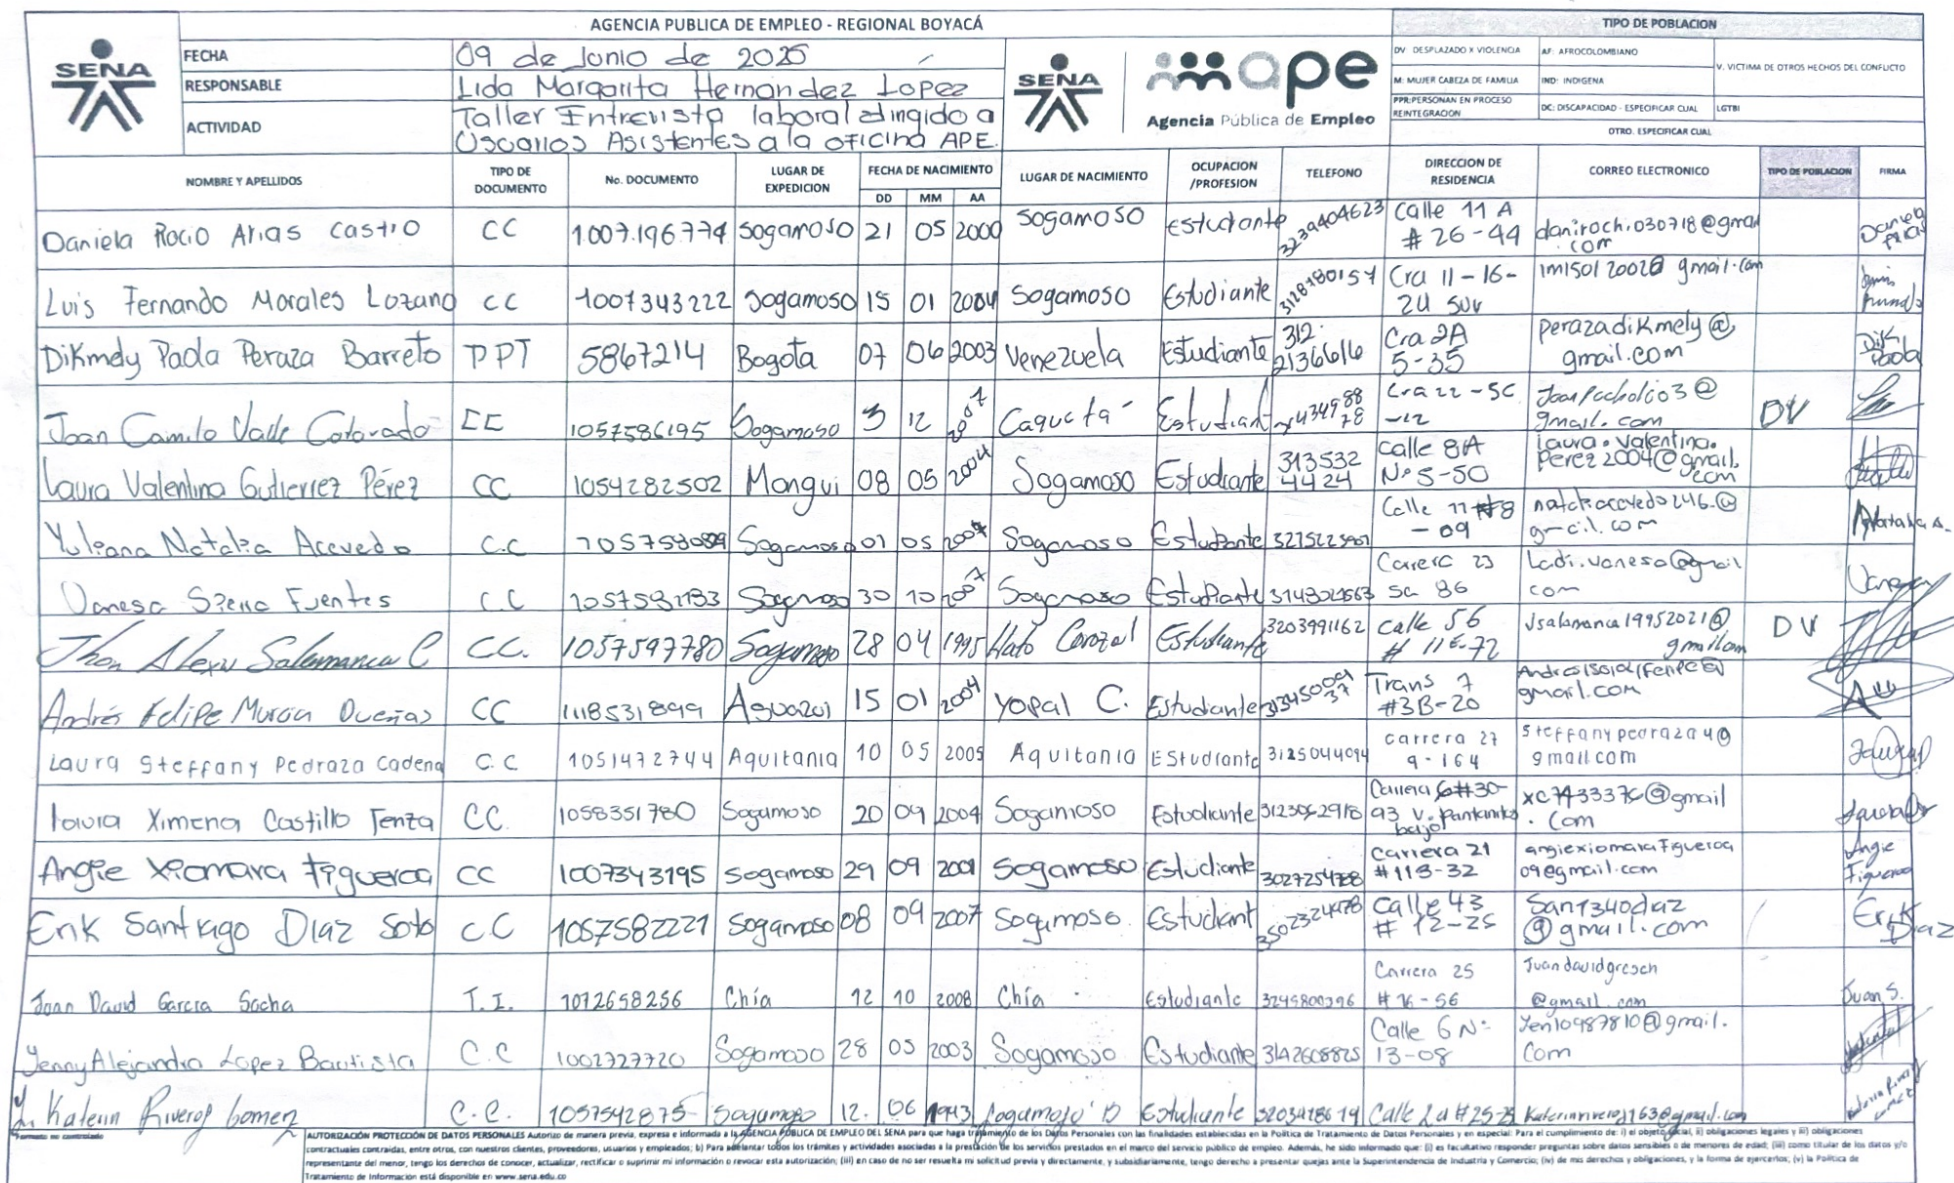 AGENCIA PUBLICA DE EMPLEO - REGIONAL BOYACÁ
TIPO DE POBLACION
SENA
FECHA 09 de Junio de 2025
RESPONSABLE Lida Margarita Hernandez Lopez
ACTIVIDAD Taller Entrevista laboral dirigido a
Usuarios Asistentes a la oficina APE.
SENA
ape
Agencia Pública de Empleo
DV DESPLAZADO X VIOLENCIA AF: AFROCOLOMBIANO V. VICTIMA DE OTROS HECHOS DEL CONFLICTO
M: MUJER CABEZA DE FAMILIA IND: INDIGENA
PPR:PERSONAN EN PROCESO REINTEGRACION DC: DISCAPACIDAD - ESPECIFICAR CUAL LGTBI
OTRO. ESPECIFICAR CUAL
NOMBRE Y APELLIDOS TIPO DE DOCUMENTO No. DOCUMENTO LUGAR DE EXPEDICION FECHA DE NACIMIENTO LUGAR DE NACIMIENTO OCUPACION /PROFESION TELEFONO DIRECCION DE RESIDENCIA CORREO ELECTRONICO TIPO DE POBLACION FIRMA
DD MM AA
Daniela Rocio Arias Castro CC 1.007.196.774 Sogamoso 21 05 2000 Sogamoso Estudiante 3239404623 Calle 11 A # 26-44 danirochi030718@gmail.com Daniela Arias
Luis Fernando Morales Lozano CC 1007343222 Sogamoso 15 01 2004 Sogamoso Estudiante 3128780157 Cra 11-16-24 sur lm15012002@gmail.com
Dikmely Paola Peraza Barreto PPT 5867214 Bogota 07 06 2003 Venezuela Estudiante 312 2136616 Cra 2A 5-35 perazadikmely@gmail.com Dik Paola
Joan Camilo Valle Colorado CC 1057586195 Sogamoso 3 12 2007 Caquetá Estudiant Cra 22-5C -12 gmail.com DV
Laura Valentina Gutierrez Pérez CC 1054282502 Mongui 08 05 2004 Sogamoso Estudiante 313532 4424 Calle 8A N° 5-50 laura.valentina.perez2004@gmail.com
Yuliana Natalia Acevedo C.C Sogamoso 01 05 2007 Sogamoso Estudiante Calle 11 #8 - 09 nataliaacevedo246.@gmail.com Natalia A.
Vanesa Sierra Fuentes C.C Sogamoso 30 10 2007 Sogamoso Estudiante Carrera 23 5a 86 Ladi.vanesa@gmail com Vanesa
Jhon Alexis Salamanca C CC. 1057597780 Sogamoso 28 04 1995 Hato Corozal Estudiante 3203991162 calle 56 # 11E-72 Jsalamanca19952021@gmail.com DV
Andrés Felipe Murcia Dueñas CC 1118531899 Aguazul 15 01 2004 Yopal C. Estudiante Trans 7 #3B-20 gmail.com
Laura Steffany Pedraza Cadena C.C 1051472744 Aquitania 10 05 2005 Aquitania Estudiante 3125044094 carrera 27 9-164 Steffanypedraza4@gmail.com
Laura Ximena Castillo Tenza CC. 1058351780 Sogamoso 20 04 2004 Sogamoso Estudiante Carrera 6#30-93 V. Pantanitos bajo xc7433376@gmail.com
Angie Xiomara Figueroa CC 1007343195 Sogamoso 29 09 2001 Sogamoso Estudiante 3027254788 carrera 21 #11B-32 angiexiomarafigueroa09@gmail.com Angie Figueroa
Erik Santiago Diaz Soto C.C 1057582221 Sogamoso 08 09 2007 Sogamoso. Estudiant 3502324478 Calle 43 # 12-25 San1340diaz@gmail.com Erik Diaz
Joan David Garcia Socha T.I. 1012658256 Chía 12 10 2008 Chía Estudiante 3245800396 Carrera 25 #16-56 Juandavidgrcsch@gmail.com Juan S.
Yenny Alejandra Lopez Bautista C.C 1002727720 Sogamoso 28 05 2003 Sogamoso Estudiante 3142608825 Calle 6 N° 13-08 Yen10987810@gmail.com
Y. Katerin Riveros Gomez C.C. 1057542875 Sogamoso 12. 06 Sogamoso B Estudiante 3203428614 Calle 2a #25-25 Katerinriveros163@gmail.com
Formato no controlado
AUTORIZACIÓN PROTECCIÓN DE DATOS PERSONALES Autorizo de manera previa, expresa e informada a la AGENCIA PÚBLICA DE EMPLEO DEL SENA para que haga tratamiento de los Datos Personales con las finalidades establecidas en la Política de Tratamiento de Datos Personales y en especial: Para el cumplimiento de: i) el objeto social, ii) obligaciones legales y iii) obligaciones
contractuales contraídas, entre otros, con nuestros clientes, proveedores, usuarios y empleados; b) Para adelantar todos los trámites y actividades asociadas a la prestación de los servicios prestados en el marco del servicio público de empleo. Además, he sido informado que: (i) es facultativo responder preguntas sobre datos sensibles o de menores de edad; (ii) como titular de los datos y/o
representante del menor, tengo los derechos de conocer, actualizar, rectificar o suprimir mi información o revocar esta autorización; (iii) en caso de no ser resuelta mi solicitud previa y directamente, y subsidiariamente, tengo derecho a presentar quejas ante la Superintendencia de Industria y Comercio; (iv) de mis derechos y obligaciones, y la forma de ejercerlos; (v) la Política de
Tratamiento de Información está disponible en www.sena.edu.co